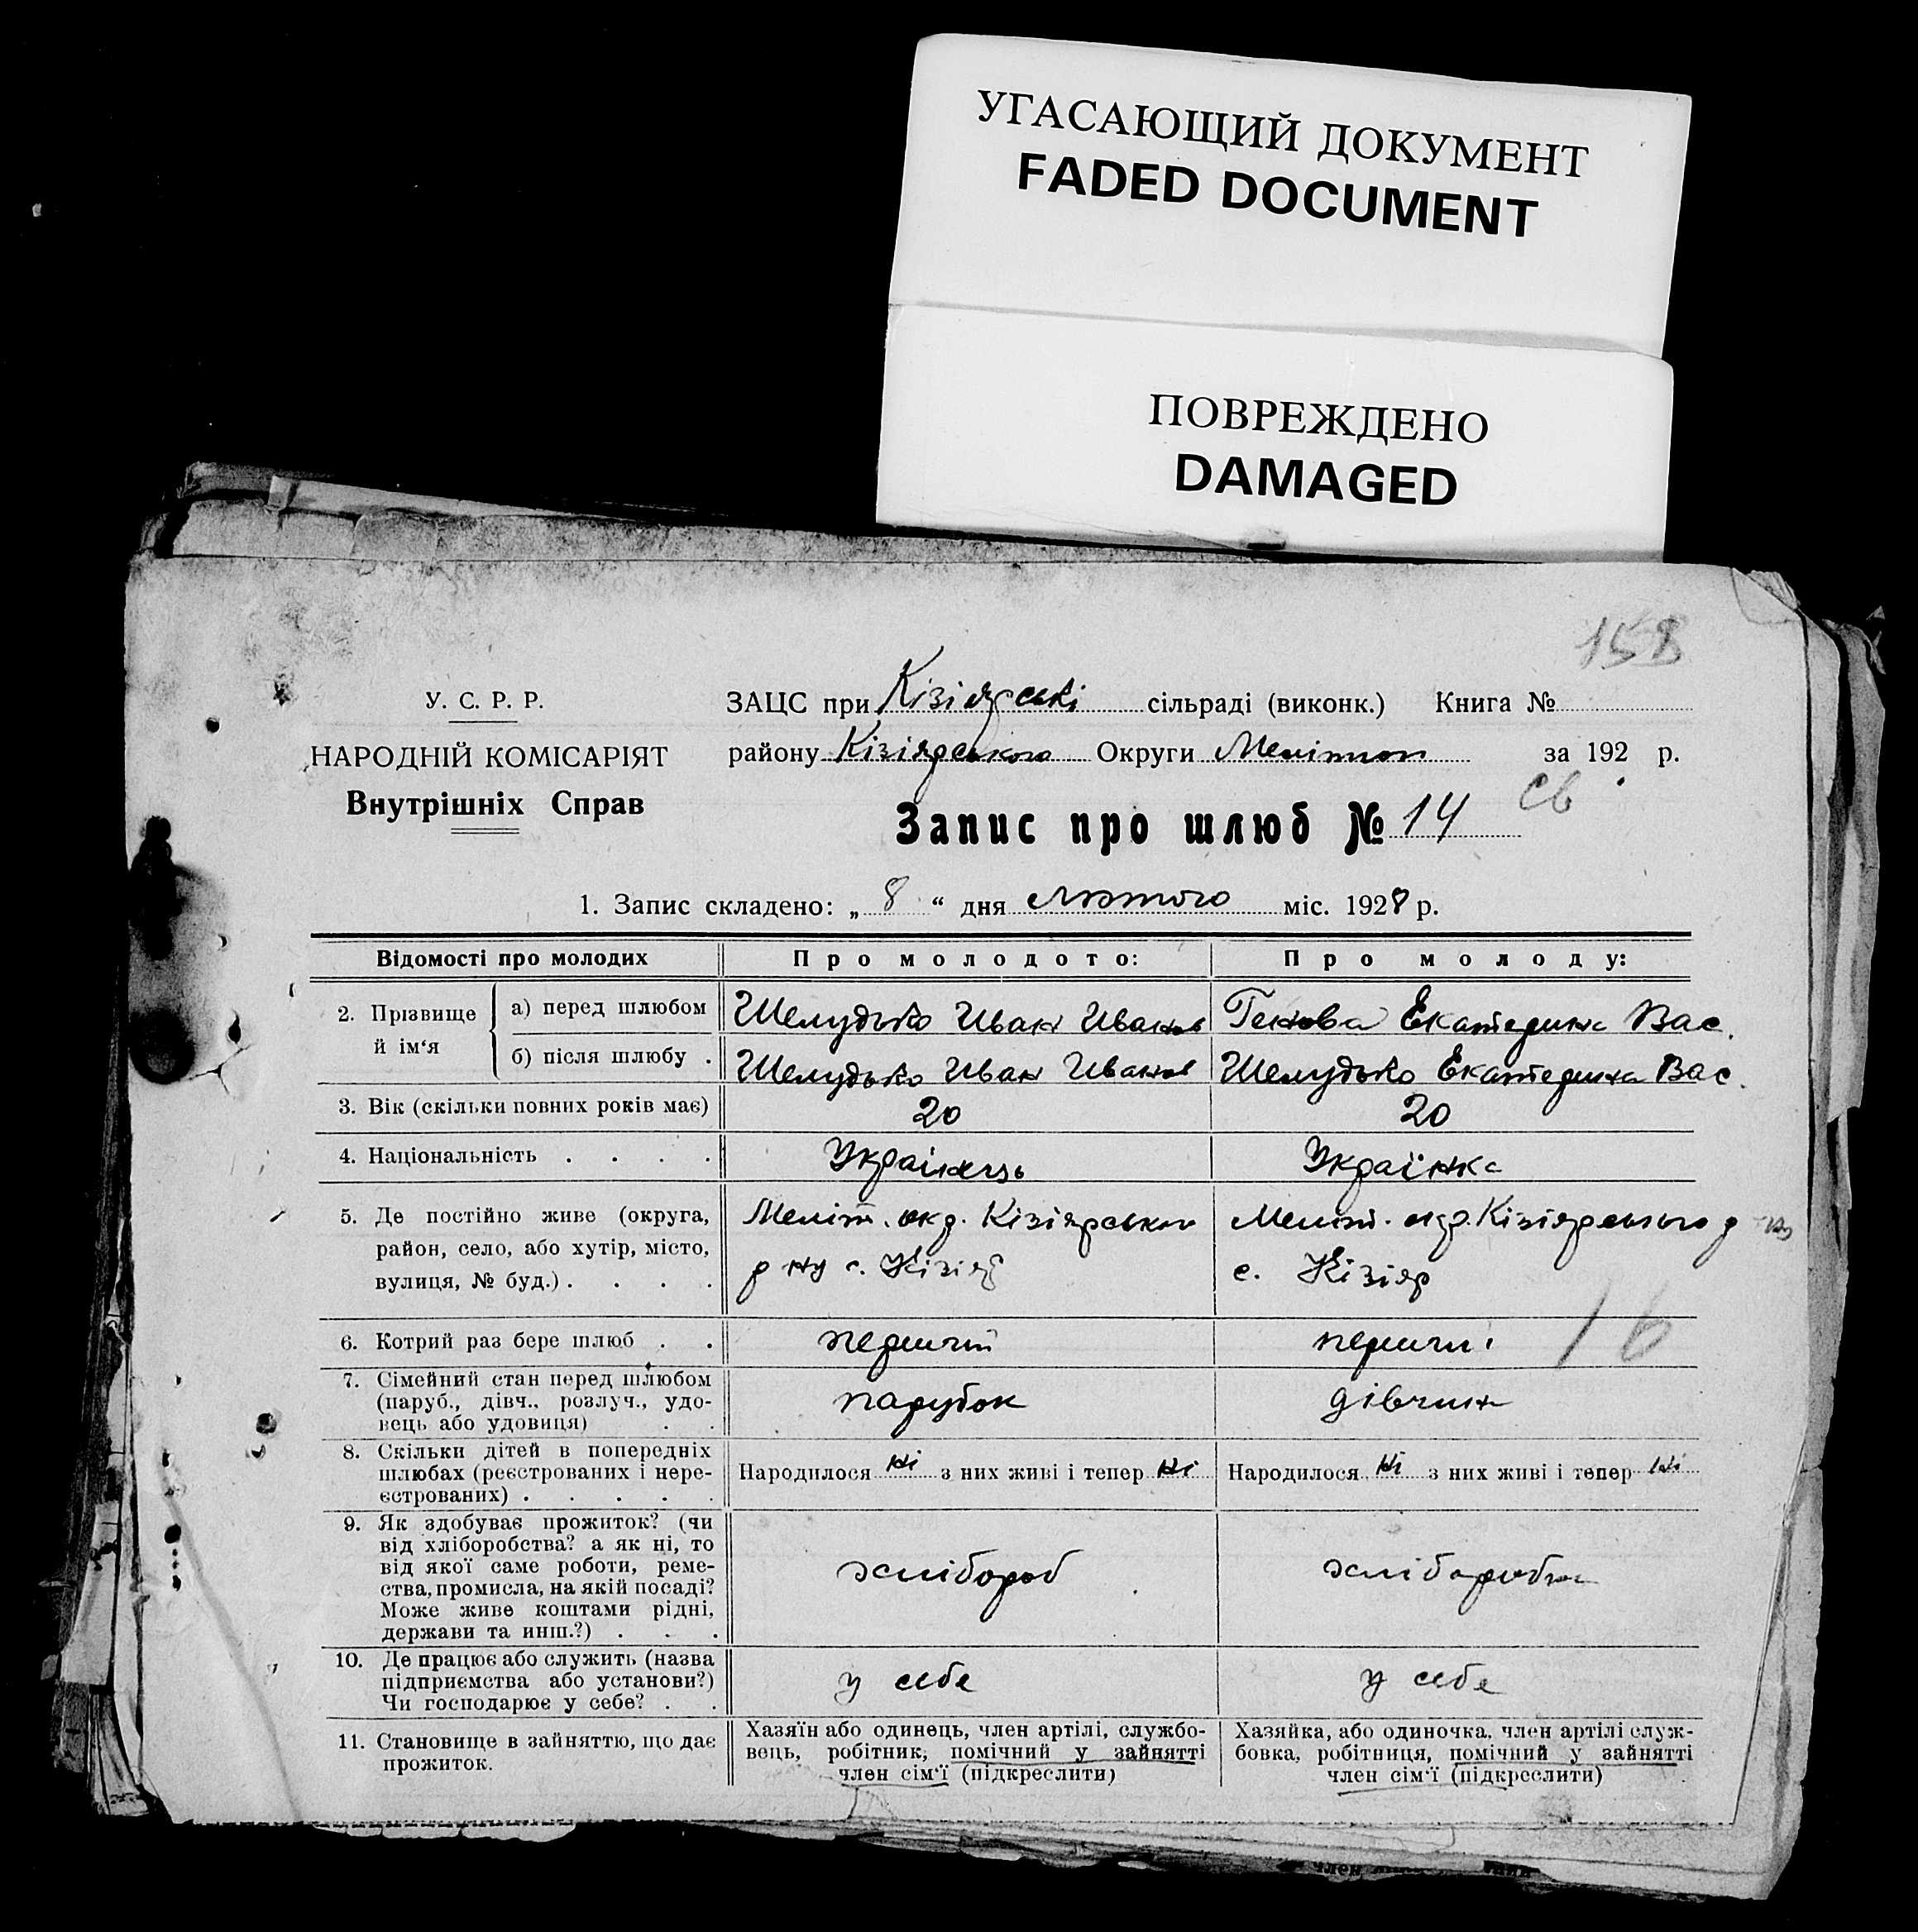 УГАСАЮЩИЙ ДОКУМЕНТ
FADED DOCUMENT
ПОВРЕЖДЕНО
DAMAGED
158
У. С. Р. Р.
НАРОДНІЙ КОМІСАРІЯТ
Внутрішніх Справ
ЗАЦС при Кізіярські сільраді (виконк.) Книга №
району Кізіярського Округи Мелітоп за 192 р.
Запис про шлюб № 14
1. Запис складено: „ 8 “ дня лютого міс. 1928 р.
Відомості про молодих Про молодого: Про молоду:
2. Прізвище й ім‘я
а) перед шлюбом Шелудько Иван Иванов Генова Екатерина Вас.
б) після шлюбу . Шелудько Иван Иванов Шелудько Екатерина Вас.
3. Вік (скільки повних років має) 20 20
4. Національність . . . . Українець Українка
5. Де постійно живе (округа, Меліт. окр. Кізіярського Меліт. окр. Кізіярського р
район, село, або хутір, місто, р ну с. Кізіяр с. Кізіяр
вулиця, № буд.) . . . .
6. Котрий раз бере шлюб . . перший перший 16
7. Сімейний стан перед шлюбом
(паруб., дівч., розлуч., удо- парубок дівчина
вець або удовиця) . .
8. Скільки дітей в попередніх
шлюбах (реєстрованих і нере- Народилося ні з них живі і тепер ні Народилося ні з них живі і тепер ні
єстрованих) . . . . .
9. Як здобуває прожиток? (чи
від хліборобства? а як ні, то
від якої саме роботи, реме- хлібороб хліборобка
ства, промисла, на якій посаді?
Може живе коштами рідні,
держави та инш.?) . . .
10. Де працює або служить (назва
підприємства або установи?) у себе у себе
Чи господарює у себе? . .
11. Становище в зайняттю, що дає
прожиток.
Хазяїн або одинець, член артілі, службо-
вець, робітник, помічний у зайнятті
член сім‘ї (підкреслити)
Хазяйка, або одиночка, член артілі служ-
бовка, робітниця, помічний у зайнятті
член сім‘ї (підкреслити)